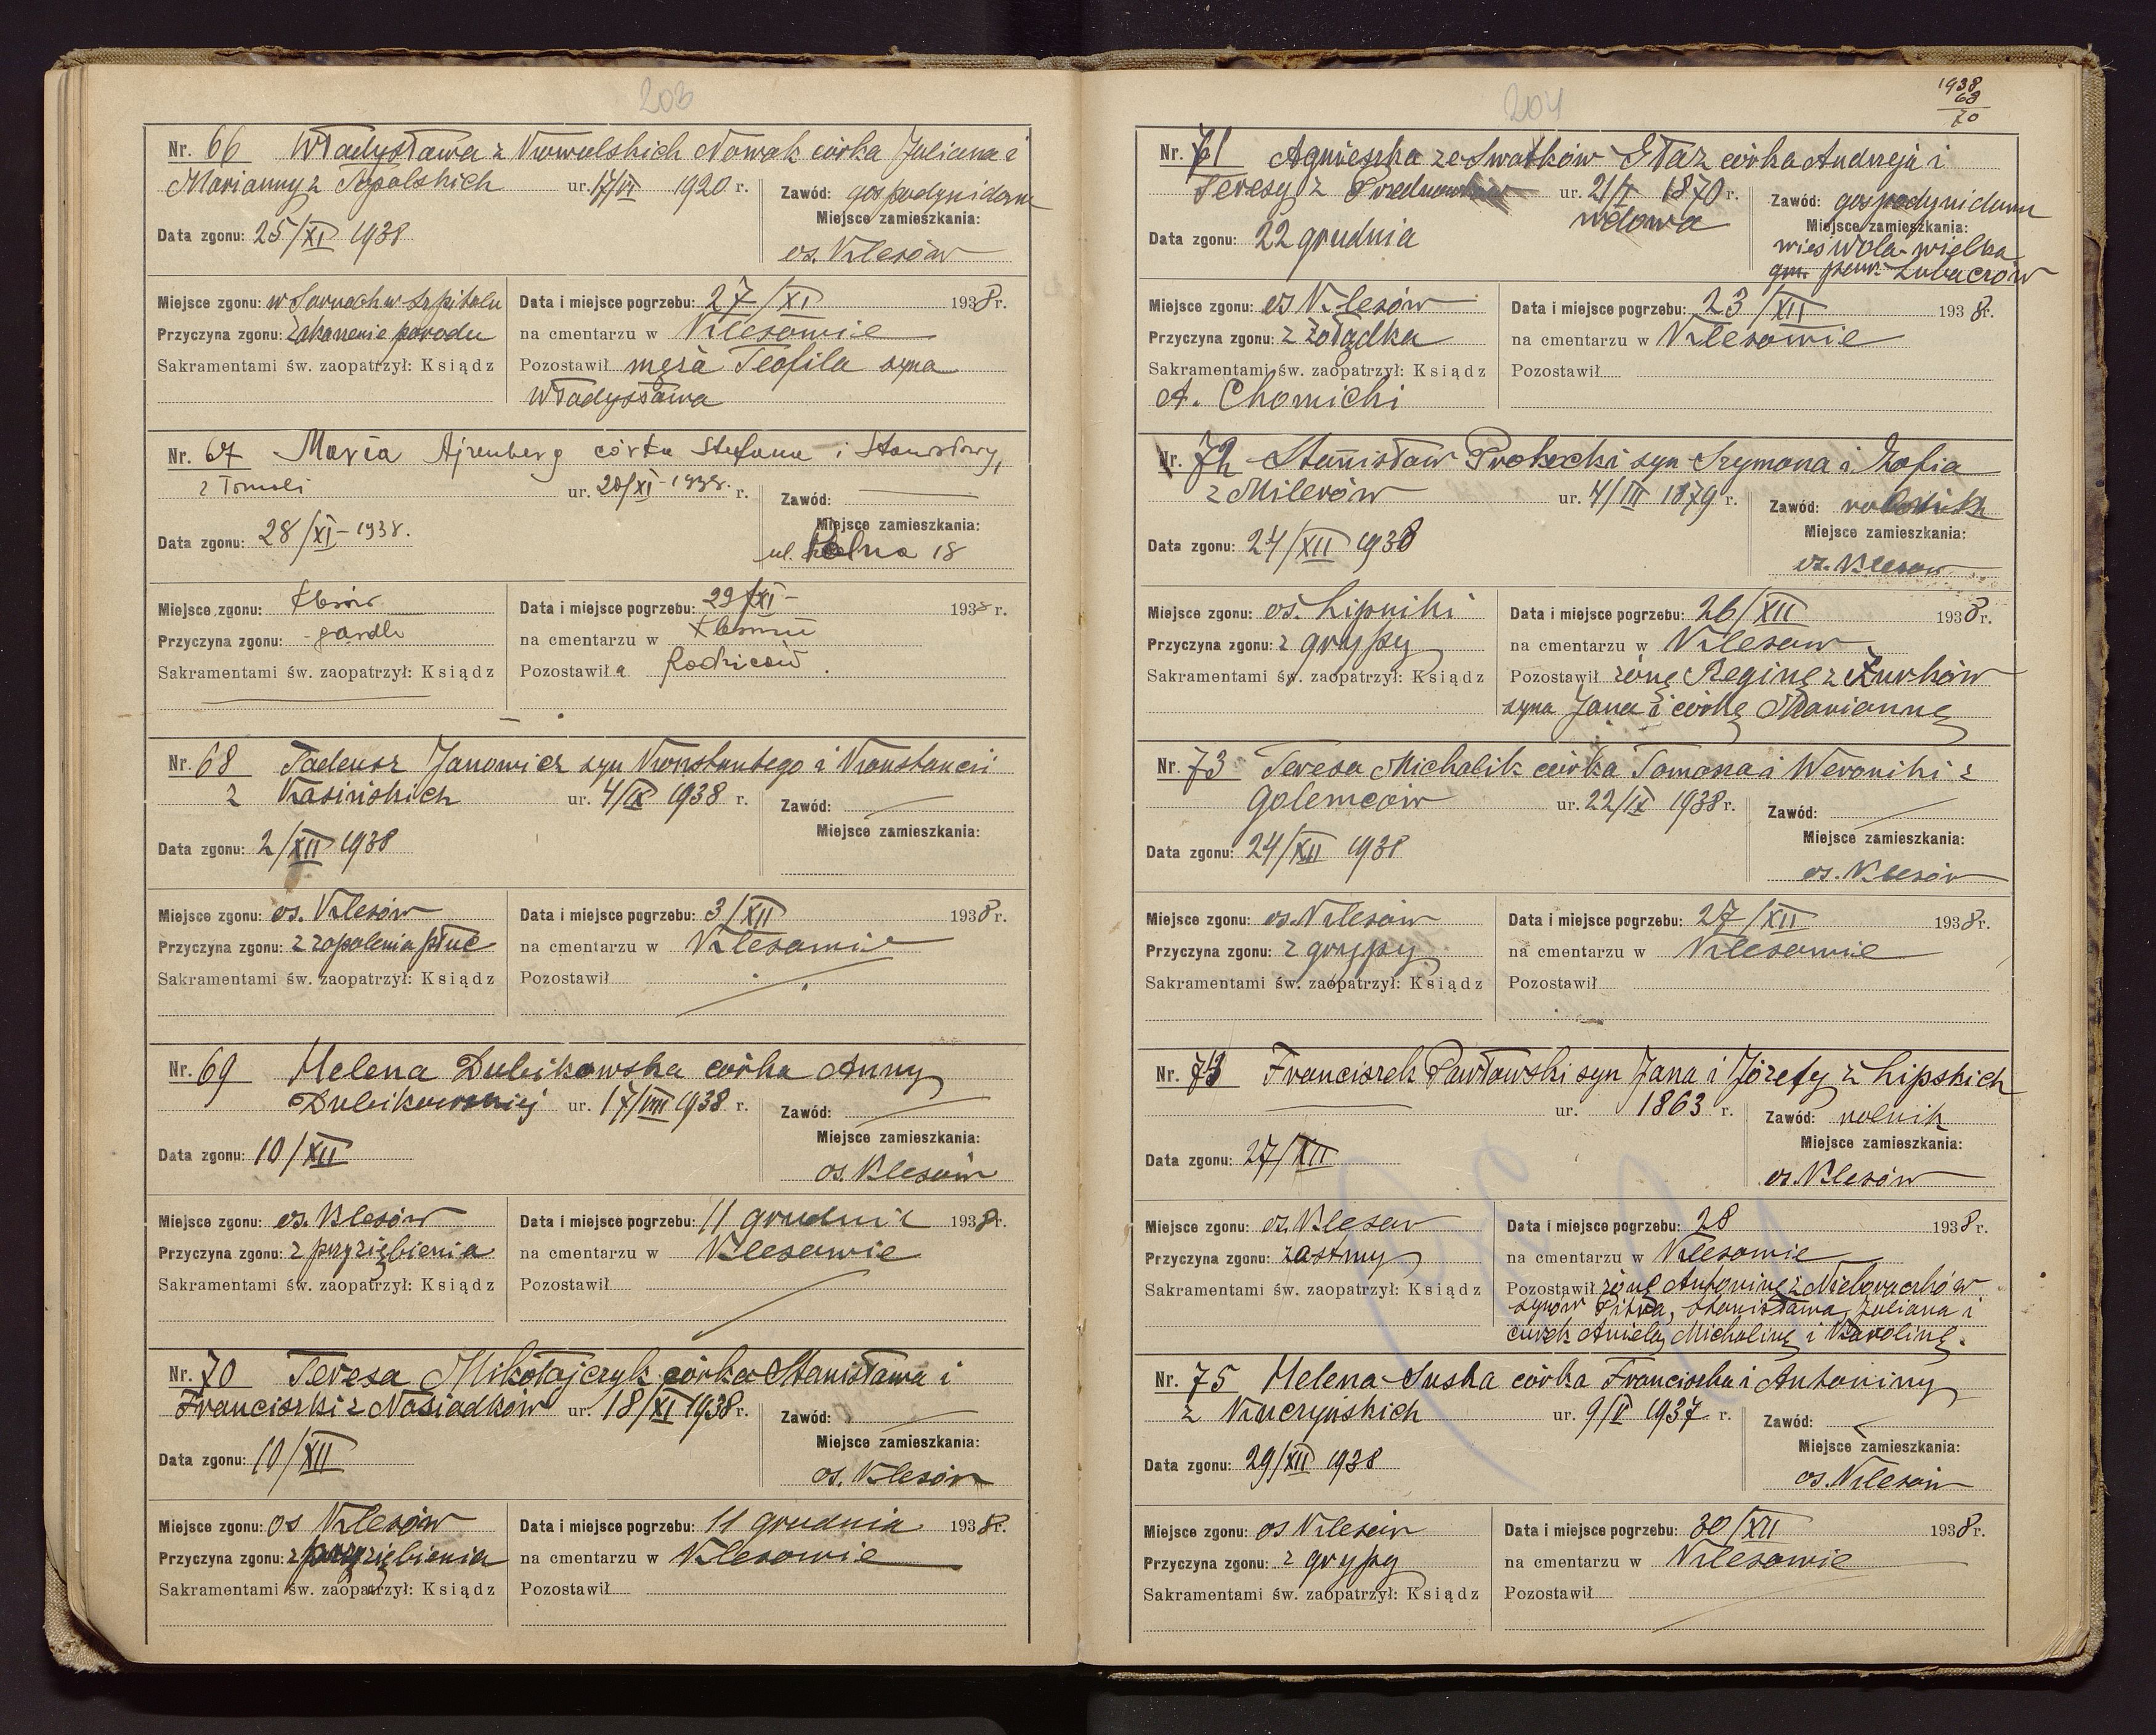 203
Nr. 66 Władysława z Kowalskich Nowak córka Juliana i
Marianny z Topolskich ur. 17/VI 1920 r. Zawód: gospodyni dom
Miejsce zamieszkania:
Data zgonu: 25/XI 1938
os. Klesów
Miejsce zgonu: w Sarnach w szpitalu Data i miejsce pogrzebu: 27/XI 1938 r.
Przyczyna zgonu: zakażenie porodu na cmentarzu w Klesowie
Sakramentami św. zaopatrzył: Ksiądz Pozostawił męża Teofila syna
Władysława
Nr. 67 Maria Ajzenberg córka Stefana i Stanisławy,
z Tomali ur. 20/XI-1938. r. Zawód:
Miejsce zamieszkania:
Data zgonu: 28/XI-1938.
ul. Kolna 18
Miejsce zgonu: Klesów Data i miejsce pogrzebu: 29/XI- 1938 r.
Przyczyna zgonu: - gardło na cmentarzu w Klesowie
Sakramentami św. zaopatrzył: Ksiądz Pozostawiła Rodziców.
Nr. 68 Tadeusz Janowicz syn Konstantego i Konstancii
z Kasińskich ur. 4/IX 1938 r. Zawód:
Miejsce zamieszkania:
Data zgonu: 2/XII 1938
Miejsce zgonu: os. Klesów Data i miejsce pogrzebu: 3/XII 1938 r.
Przyczyna zgonu: z zapalenia płuc na cmentarzu w Klesowie
Sakramentami św. zaopatrzył: Ksiądz Pozostawił
Nr. 69 Helena Dubikowska córka Anny
Dubikowskiej ur. 17/VIII 1938 r. Zawód:
Miejsce zamieszkania:
Data zgonu: 10/XII
os. Klesów
Miejsce zgonu: os. Klesów Data i miejsce pogrzebu: 11 grudnia 1938 r.
Przyczyna zgonu: z przyziębienia na cmentarzu w Klesowie
Sakramentami św. zaopatrzył: Ksiądz Pozostawił
Nr. 70 Teresa Mikołajczyk córka Stanisława i
Franciszki z Nasiadków ur. 18/XI 1938 r. Zawód:
Miejsce zamieszkania:
Data zgonu: 10/XII
os. Klesów
Miejsce zgonu: os Klesów Data i miejsce pogrzebu: 11 grudnia 1938 r.
Przyczyna zgonu: z przyziębienia na cmentarzu w Klesowie
Sakramentami św. zaopatrzył: Ksiądz Pozostawił
204
1938
68
70
Nr. 71 Agnieszka ze Swatków Głaz córka Andrzeja i
Teresy z ur. 21/I 1870 r. Zawód: gospodyni domu
wdowa
Miejsce zamieszkania:
Data zgonu: 22 grudnia
wieś Wola-wielka
gm. pow. Lubaczów
Miejsce zgonu: os Klesów Data i miejsce pogrzebu: 23/XII 1938 r.
Przyczyna zgonu: z żołądka na cmentarzu w Klesowie
Sakramentami św. zaopatrzył: Ksiądz Pozostawił
A. Chomicki
Nr. 72 Stanisław Protecki syn Szymona i Zofia
z Milerów ur. 4/III 1879 r. Zawód: robotnik
Miejsce zamieszkania:
Data zgonu: 24/XII 1938
os. Klesow
Miejsce zgonu: os. Lipniki Data i miejsce pogrzebu: 26/XII 1938 r.
Przyczyna zgonu: z grypy na cmentarzu w Klesow
Sakramentami św. zaopatrzył: Ksiądz Pozostawił żonę Reginę z Żurków
syna Jana i córkę Mariannę
Nr. 73 Teresa Michalik córka Tomasza i Weroniki z
Golemców ur. 22/IX 1938 r. Zawód:
Miejsce zamieszkania:
Data zgonu: 24/XII 1938
os. Klesów
Miejsce zgonu: os. Klesów Data i miejsce pogrzebu: 27/XII 1938 r.
Przyczyna zgonu: z grypy na cmentarzu w Klesowie
Sakramentami św. zaopatrzył: Ksiądz Pozostawił
Nr. 74 Franciszek Pawłowski syn Jana i Józefy z Lipskich
ur. 1863 r. Zawód: rolnik
Miejsce zamieszkania:
Data zgonu: 27/XII
os. Klesów
Miejsce zgonu: os. Klesow Data i miejsce pogrzebu: 28 1938 r.
Przyczyna zgonu: z astmy na cmentarzu w Klesowie
Sakramentami św. zaopatrzył: Ksiądz Pozostawił żonę Antoninę z Nieboraczków
synów Piotra, Stanisława, Juliana i
curek Anielę, Michalinę i Karolinę.
Nr. 75 Helena Suska córka Franciszka i Antoniny
z Kuczyńskich ur. 9/V 1937 r. Zawód:
Miejsce zamieszkania:
Data zgonu: 29/XII 1938
os. Klesów
Miejsce zgonu: os Klesów Data i miejsce pogrzebu: 30/XII 1938 r.
Przyczyna zgonu: z grypy na cmentarzu w Klesowie
Sakramentami św. zaopatrzył: Ksiądz Pozostawił